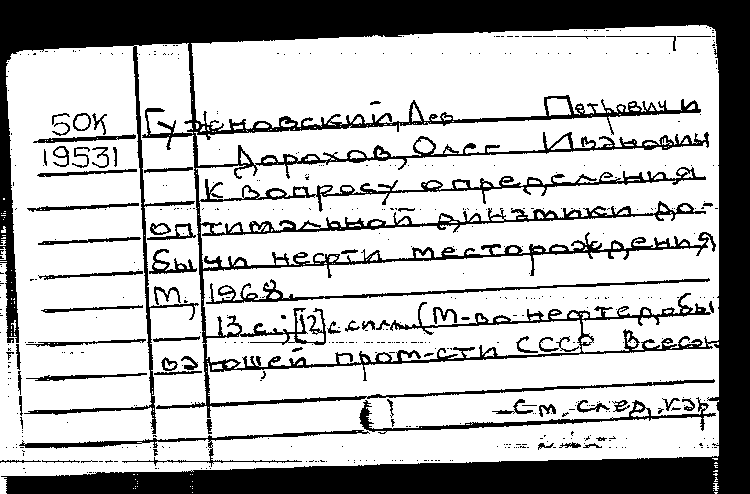 50К Гужновский, Лев Петрович и
19531 Дорохов, Олег Иванович
К вопросу определения
оптимальной динамики до-
бычи нефти месторождения
М., 1968.
13 с.; [12] с. илл. (М-во нефтедобы
вающей пром-сти СССР. Всесоюз
См. след. карт